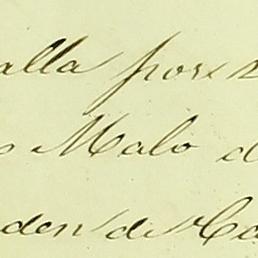 alla por
Malo d
den de Ca